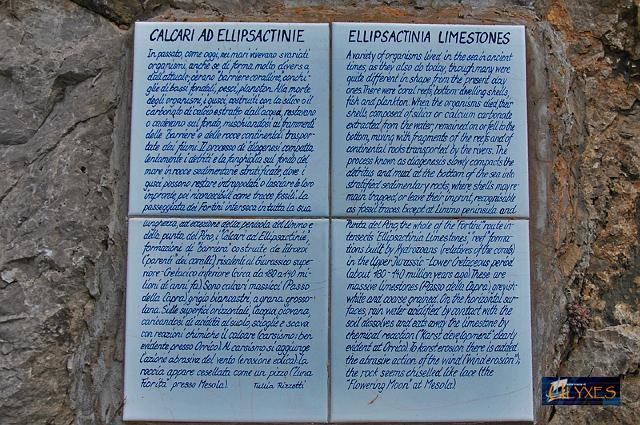 CALCARI AD ELLIPSACTINIE
In passato, come oggi, nei mari vivevano svariati
organismi, anche se di forma molto diversa
dall'attuale; c'erano barriere coralline, conchi-
glie di bassi fondali, pesci, plancton. Alla morte
degli organismi, i gusci, costruiti con la silice o il
carbonato di calcio estratto dall'acqua, restavano
o cadevano sul fondo, mischiandosi ai frammenti
delle barriere o delle rocce continentali traspor-
tate dai fiumi. Il processo di diagenesi compatta
lentamente i detriti e la fanghiglia sul fondo del
mare in rocce sedimentarie stratificate, dove i
gusci possono restare intrappolati o lasciare le loro
impronte, poi riconoscibili come tracce fossili. La
passeggiata dei Fortini interseca in tutta la sua
lunghezza, ad eccezione della penisola del Limmo e
della punta del Pino, i Calcari ad Ellipsactinie,
formazioni di barriera costruite da idrozoi
(parenti dei coralli) risalenti al Giurassico supe-
riore-Cretacico inferiore (circa da 180 a 140 mi-
lioni di anni fa). Sono calcari massicci (Passo
della Capra) grigio biancastri, a grana grosso-
lana. Sulle superfici orizzontali, l'acqua piovana,
caricandosi di acidità al suolo, scioglie e scava
con reazioni chimiche il calcare (carsismo: ben
evidente presso Orrico). Al carsismo si aggiunge
l'azione abrasiva del vento (erosione eolica): la
roccia appare cesellata come un pizzo ("Luna
Fiorita" presso Mesola). Tullia Rizzotti
ELLIPSACTINIA LIMESTONES
A variety of organisms lived in the sea in ancient
times, as they also do today, though many were
quite different in shape from the present day
ones. There were coral reefs, bottom dwelling shells,
fish and plankton. When the organisms died, their
shells, composed of silica or calcium carbonate
extracted from the water, remained on or fell to the
bottom, mixing with fragments of the reefs and of
continental rocks transported by the rivers. The
process known as diagenesis slowly compacts the
detritus and mud at the bottom of the sea into
stratified sedimentary rocks, where shells may re-
main trapped, or leave their imprint, recognisable
as fossil traces. Except at Limmo peninsula and
Punta del Pino, the whole of the Fortini route in-
tersects Ellipsactinia Limestones, reef forma-
tions built by hydrozoans (relatives of the corals)
in the Upper Jurassic - Lower Cretaceous period
(about 180-140 million years ago). These are
massive limestones (Passo della Capra), greyish-
white and coarse grained. On the horizontal sur-
faces, rain water acidified by contact with the
soil dissolves and eats away the limestone by
chemical reaction ("Karst development" clearly
evident at Orrico). To Karst erosion there is added
the abrasive action of the wind (Wind erosion):
the rock seems chiselled like lace (the
"Flowering Moon" at Mesola).
ULYXES